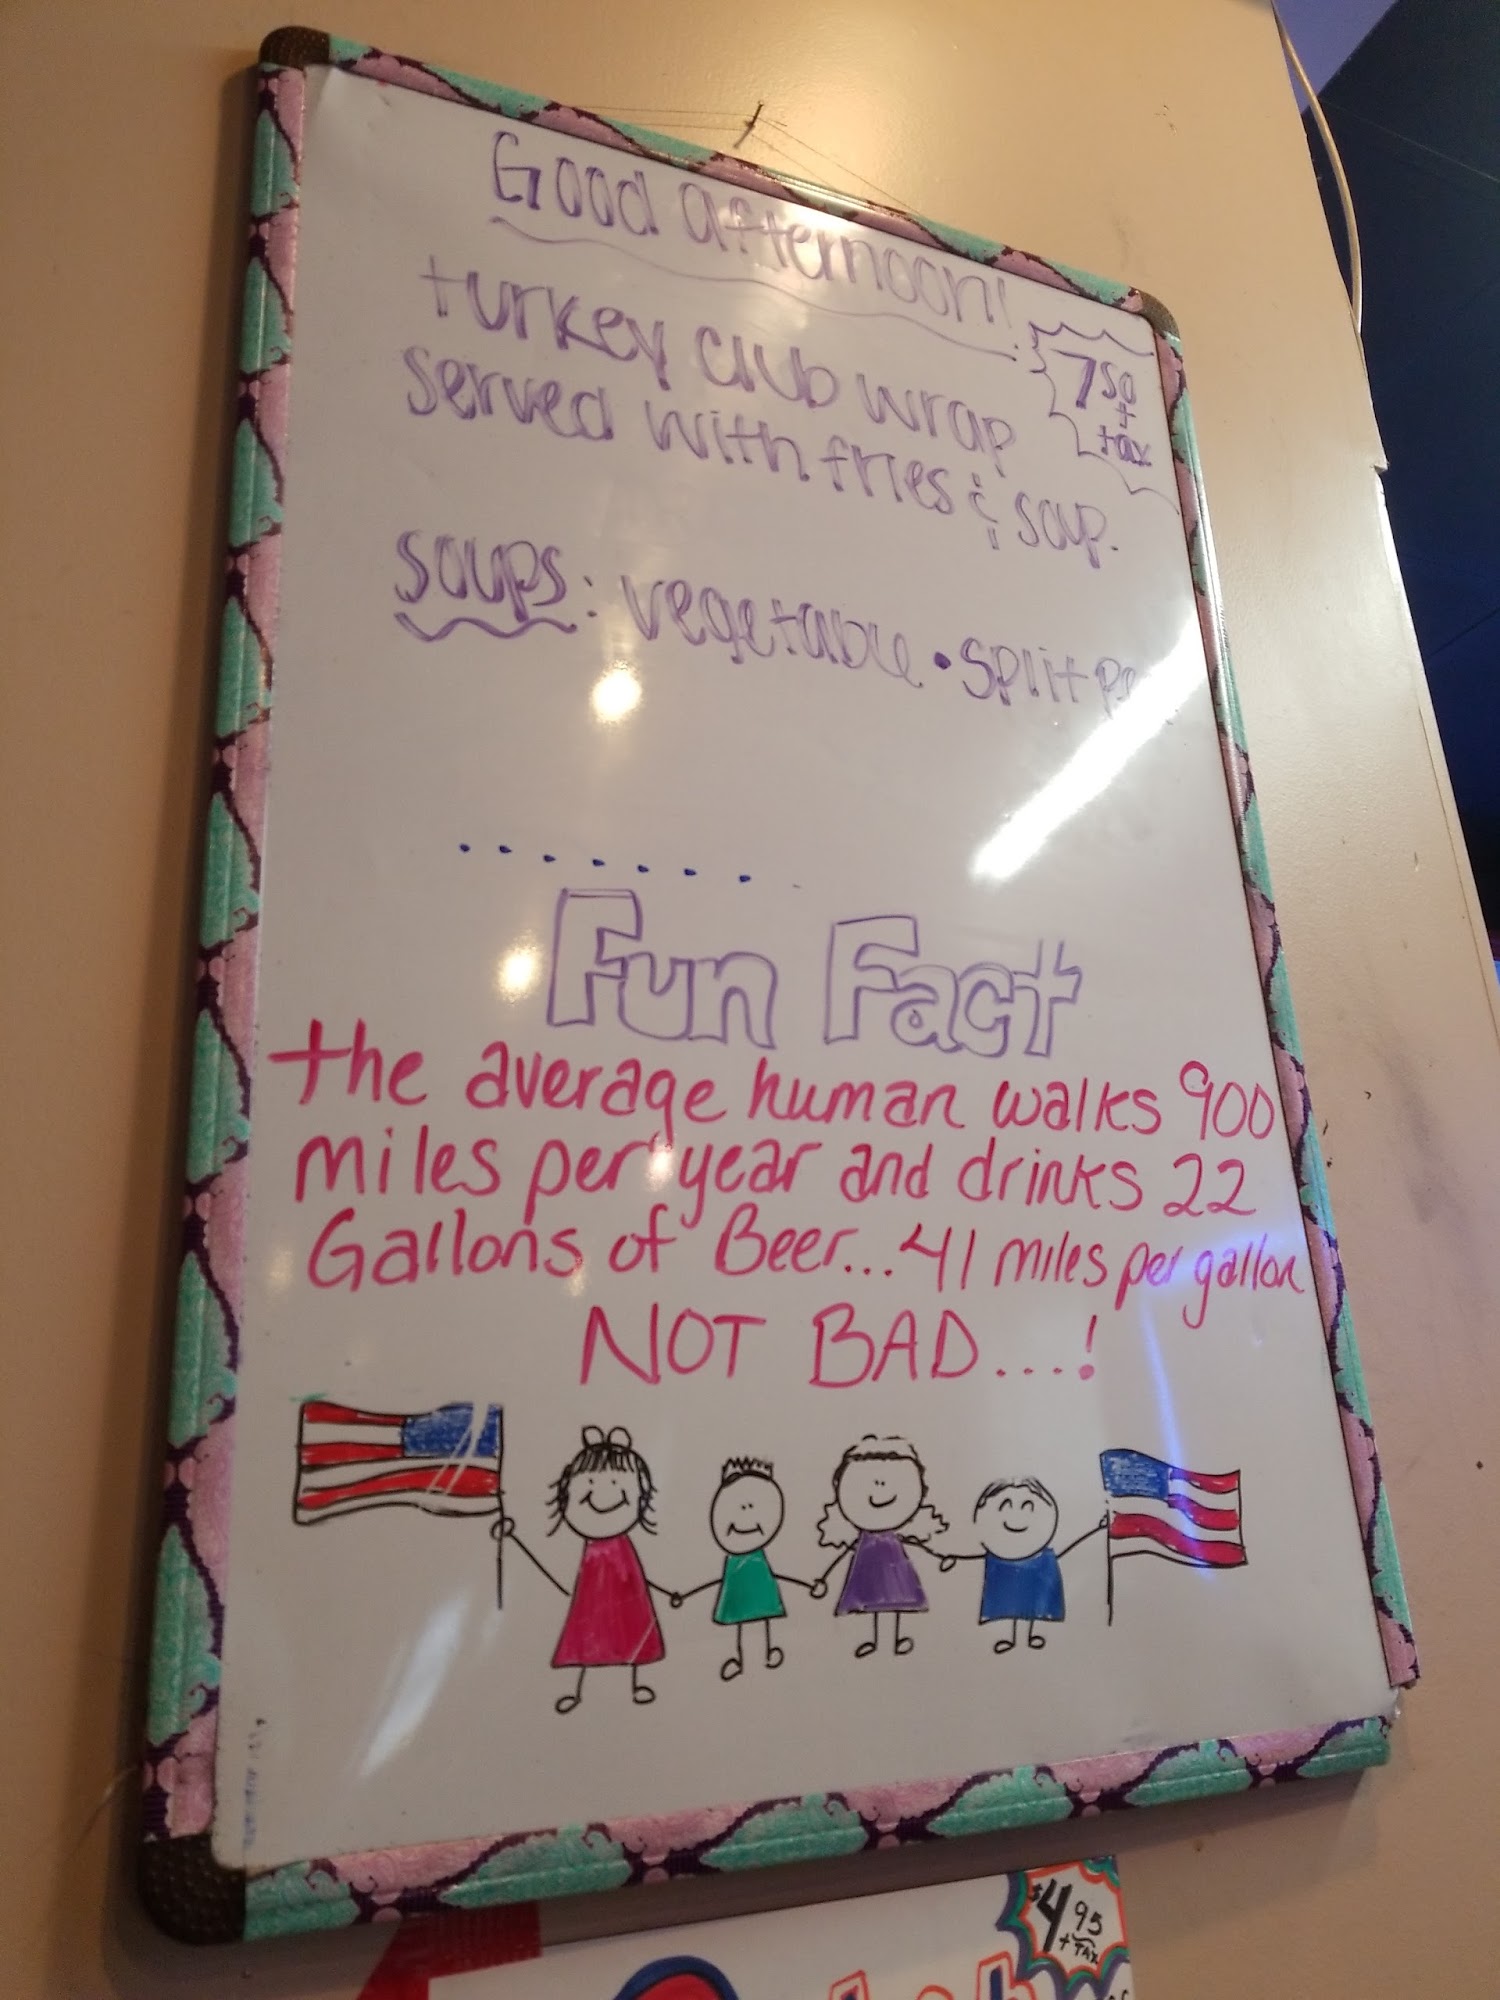 Good afternoon!
turkey club wrap
served with fries & soup.
7 50
+
tax
soups: vegetable • split
Fun Fact
the average human walks 900
miles per year and drinks 22
Gallons of Beer... 41 miles per gallon
NOT BAD....!
$4 95
+ TAX